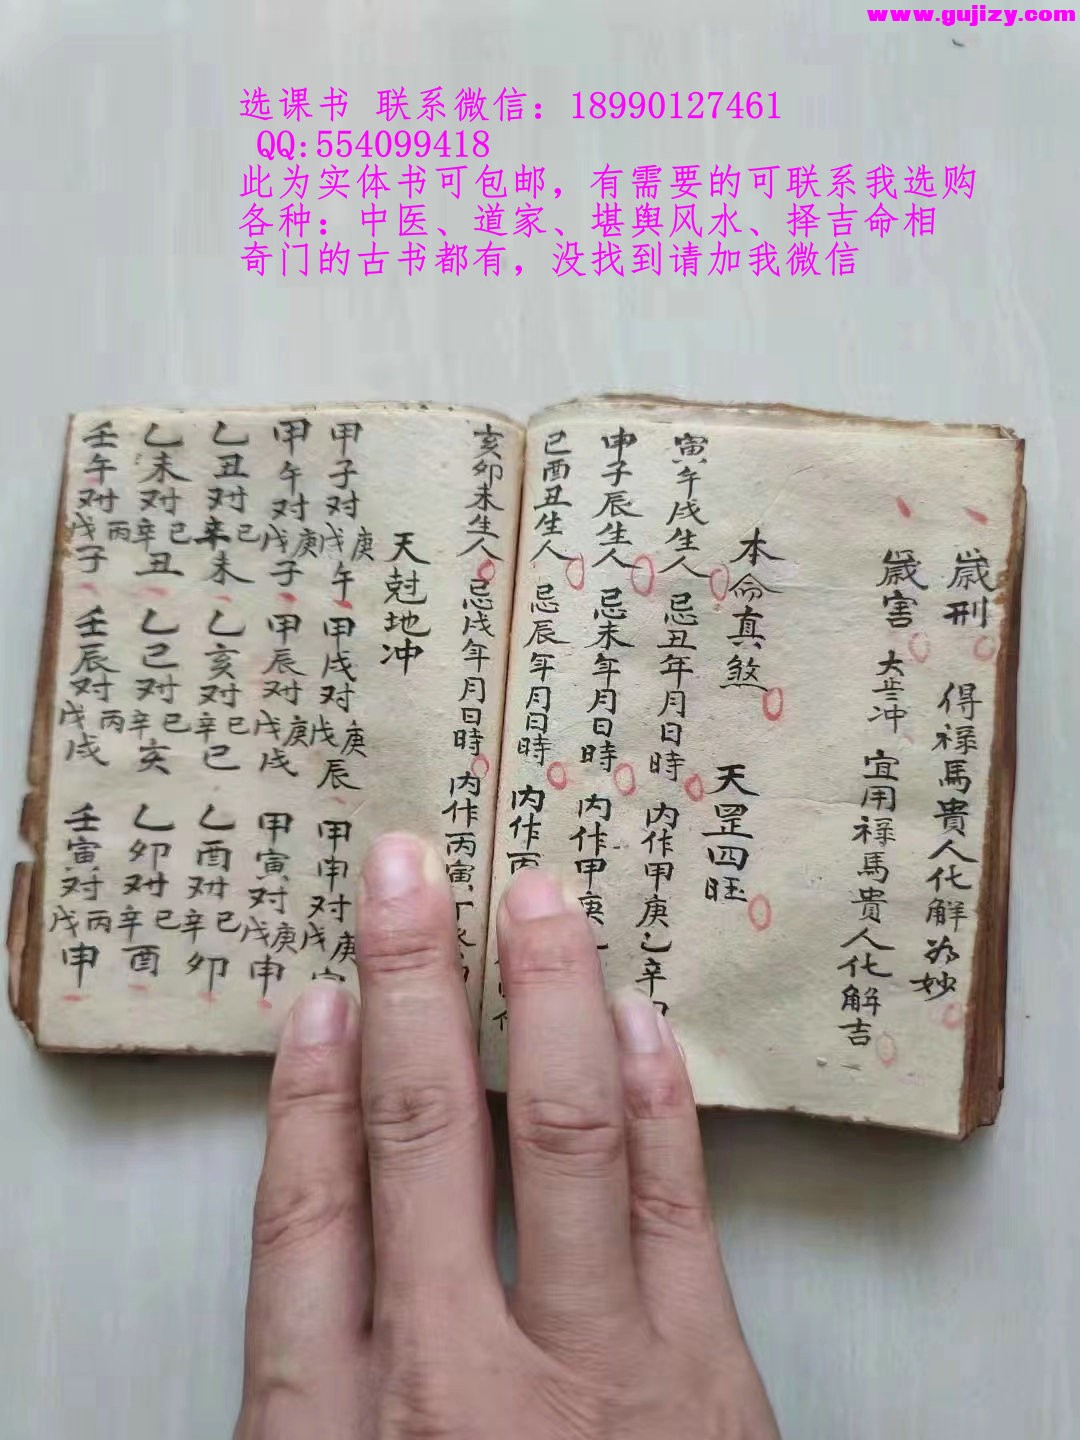 www.gujizy.com
选课书 联系微信：18990127461
QQ:554099418
此为实体书可包邮，有需要的可联系我选购
各种：中医、道家、堪舆风水、择吉命相
奇门的古书都有，没找到请加我微信
歲刑 得禄馬貴人化解為妙
歲害 大步冲 宜用禄馬貴人化解吉
本命真煞 天罡四旺
寅午戌生人 忌丑年月日時 内作甲庚乙辛
申子辰生人 忌未年月日時 内作甲庚
巳酉丑生人 忌辰年月日時 内作丙
亥卯未生人 忌戌年月日時 内作丙寅
天尅地冲
甲子对戊庚午 甲戌对戊庚辰 甲申对戊庚
甲午对戊庚子 甲辰对戊庚戌 甲寅对戊庚申
乙丑对辛己未 乙亥对辛己巳 乙酉对辛己卯
乙未对辛己丑 乙巳对辛己亥 乙卯对辛己酉
壬午对戊丙子 壬辰对戊丙戌 壬寅对戊丙申